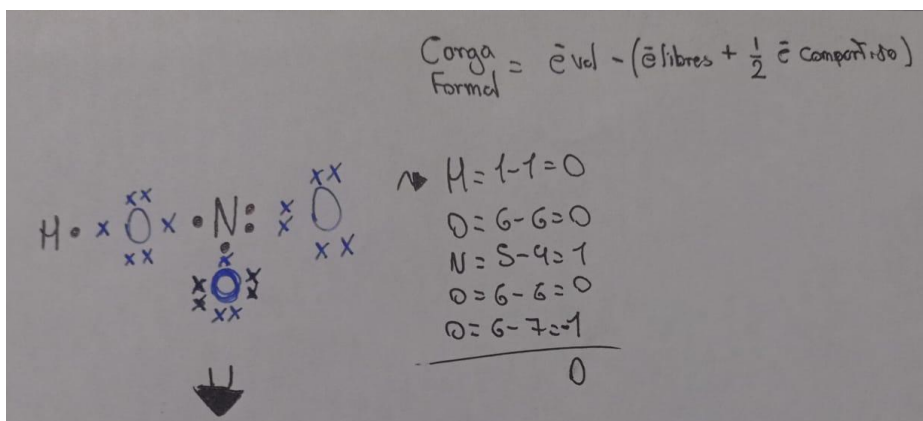 Carga
Formal = ē val - (ē libres + 1/2 ē compartido)
H • x O x • N : x x O
O
~ H = 1-1=0
O = 6-6=0
N = 5-4=1
O = 6-6=0
O = 6-7=-1
0